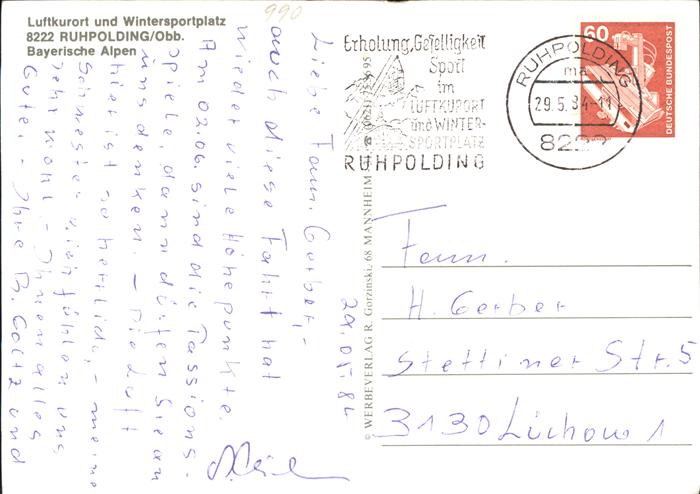 Luftkurort und Wintersportplatz
8222 RUHPOLDING/Obb.
Bayerische Alpen
990
Erholung, Geselligkeit
Sport
im
LUFTKURORT
und WINTER-
SPORTPLATZ
RUHPOLDING
RUHPOLDING
ma
29.5.84-11
8222
60
DEUTSCHE BUNDESPOST
© WERBEVERLAG R. Gorzinski, 68 MANNHEIM
29.05.84
Liebe Fam. Gerber, -
auch diese Fahrt hat
wieder viele Höhepunkte.
Am 02.06. sind die Passions-
spiele, dann dürfen Sie an
uns denken. - Die Luft
hier ist so herrlich, - meine
Schwester u. ich fühlen uns
sehr wohl. - Ihnen alles
Gute, - Ihre B. Goltz und
Fam.
H. Gerber
Stettiner Str. 5
3130 Lüchow 1